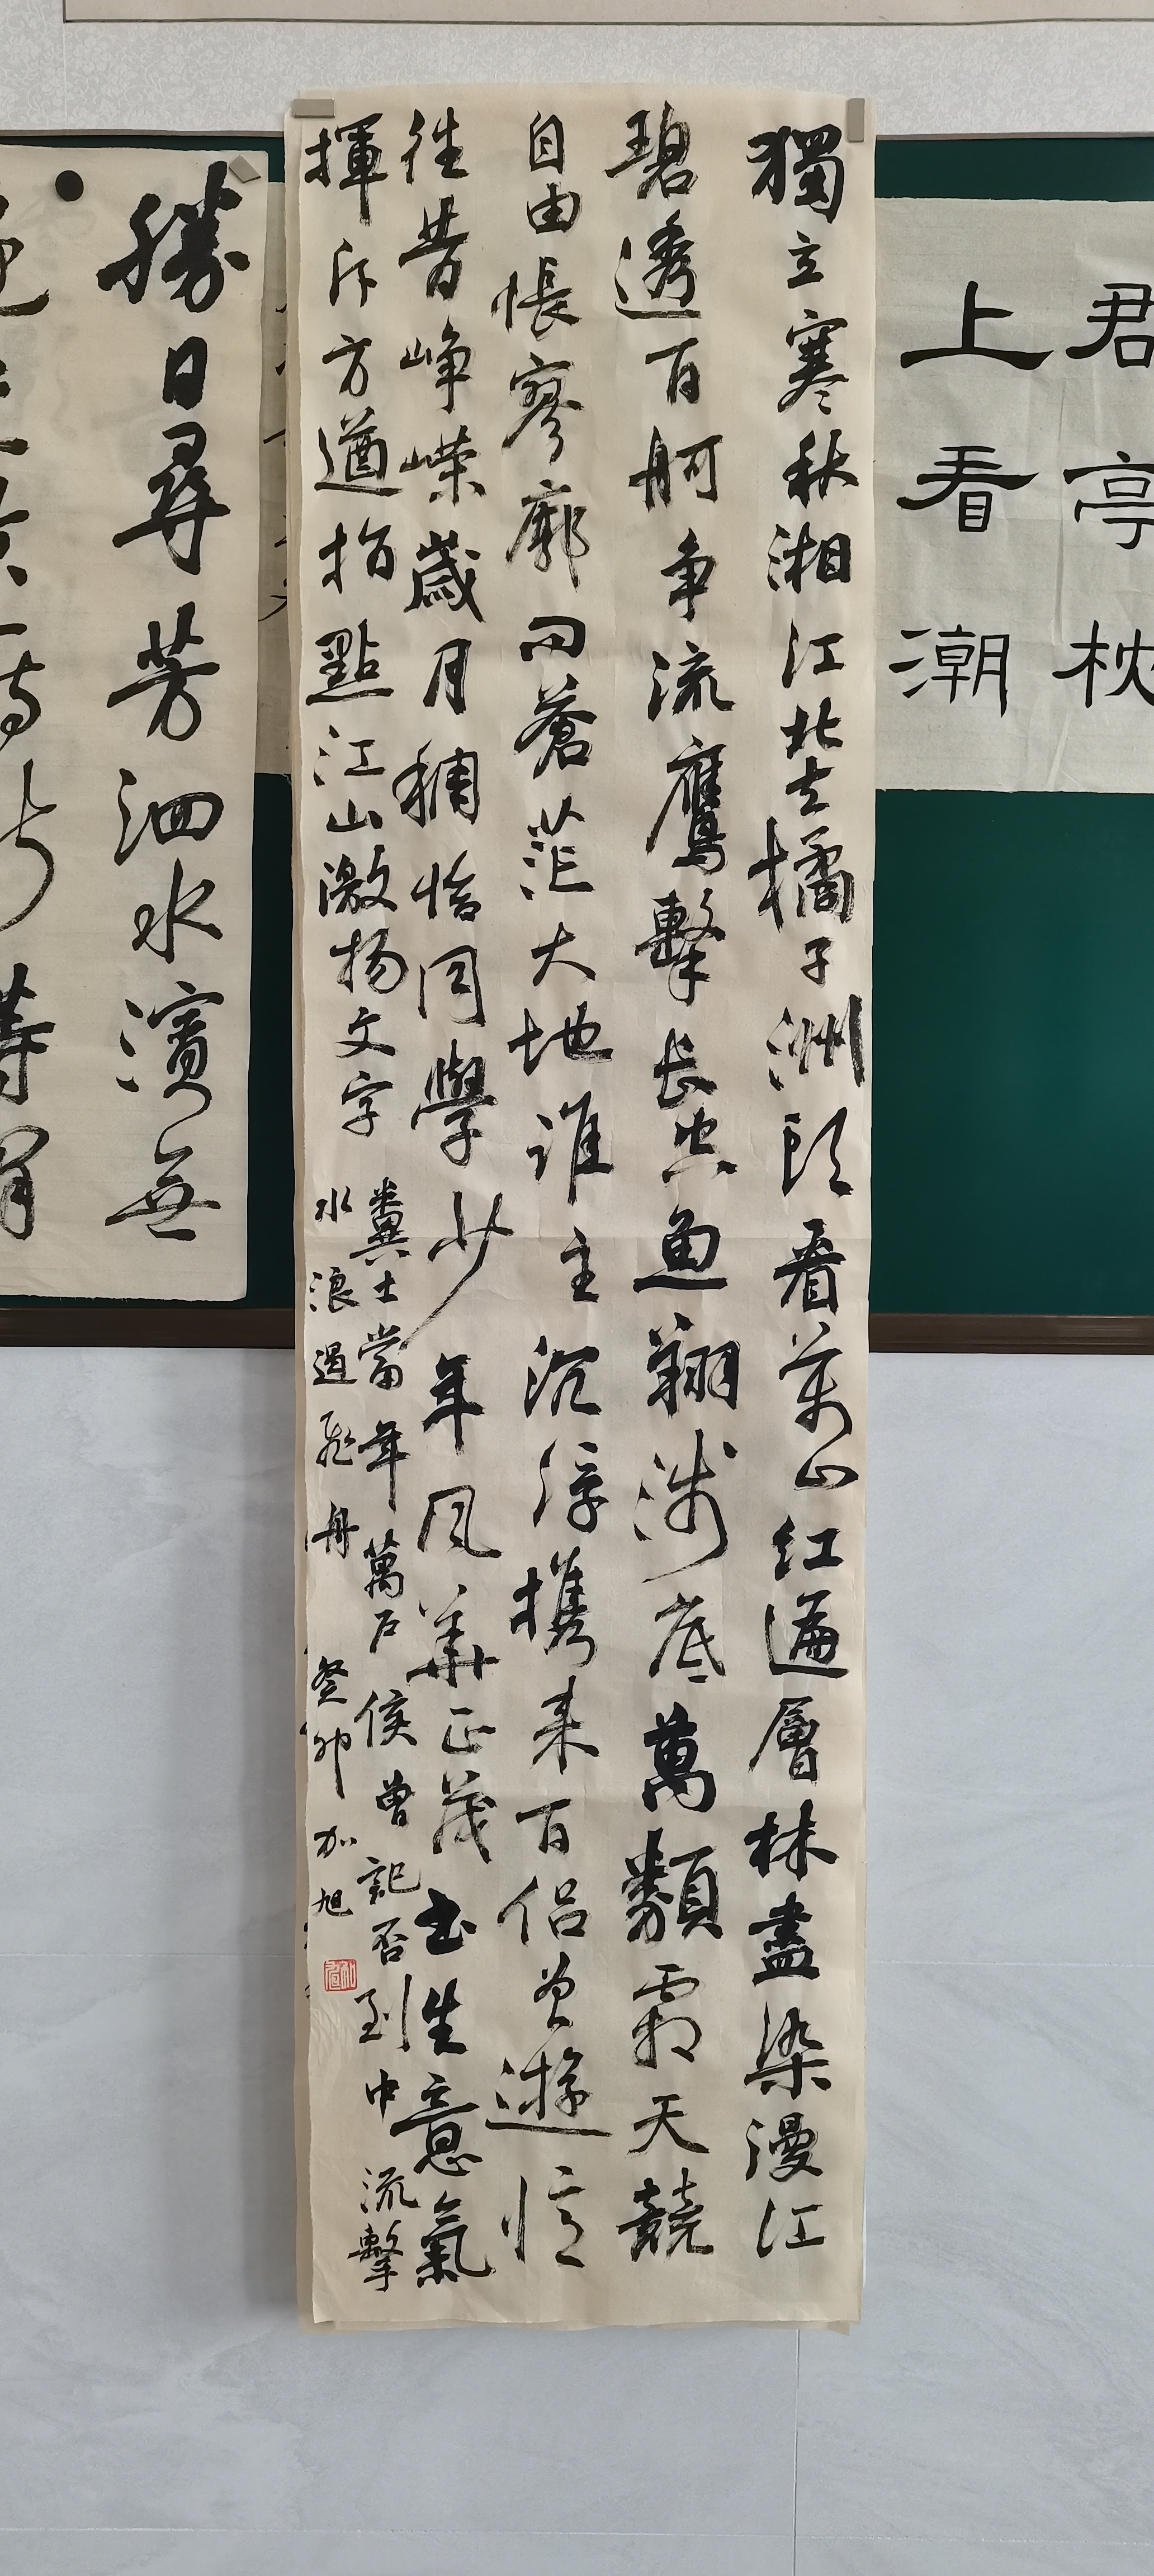 亭枕
上看潮
獨立寒秋湘江北去橘子洲头看萬山红遍層林盡染漫江
碧透百舸争流鷹擊长空魚翔浅底萬類霜天競
自由悵寥廓问蒼茫大地谁主沉浮携来百侣曾遊憶
往昔峥嵘歲月稠恰同學少年风華正茂书生意氣
揮斥方遒指點江山激扬文字
糞土當年萬户侯曾記否到中流擊
水浪遏飛舟 癸卯加旭
勝日尋芳泗水濱無